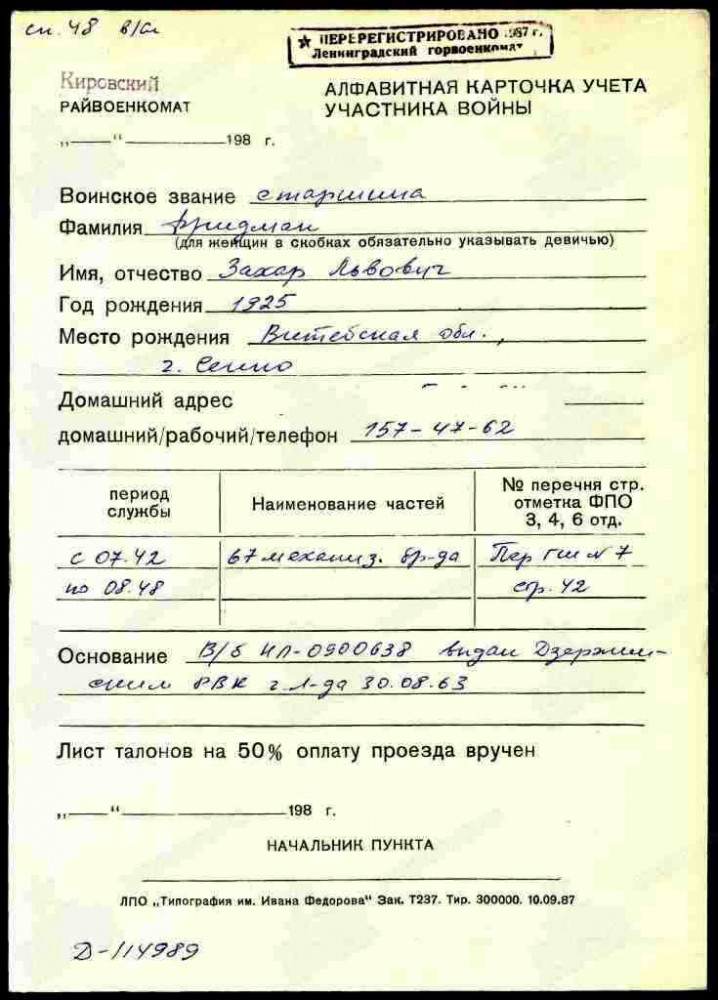 сп. 48 в/сл
★ ПЕРЕРЕГИСТРИРОВАНО 1987 г.
Ленинградский горвоенкомат
Кировский
РАЙВОЕНКОМАТ
АЛФАВИТНАЯ КАРТОЧКА УЧЕТА
УЧАСТНИКА ВОЙНЫ
„ “ 198 г.
Воинское звание старшина
Фамилия Фридман
(для женщин в скобках обязательно указывать девичью)
Имя, отчество Захар Львович
Год рождения 1925
Место рождения Витебская обл.,
г. Сенно
Домашний адрес
домашний/рабочий/телефон 157-47-62
период службы
Наименование частей
№ перечня стр. отметка ФПО 3, 4, 6 отд.
с 07.42 67 механиз. бр-да Пер ГШ № 7
по 08.48 стр. 42
Основание В/б НЛ-0900638 выдан Дзержин-
ским РВК г. Л-да 30.08.63
Лист талонов на 50% оплату проезда вручен
„ “ 198 г.
НАЧАЛЬНИК ПУНКТА
ЛПО „Типография им. Ивана Федорова“ Зак. Т237. Тир. 300000. 10.09.87
Д-114989